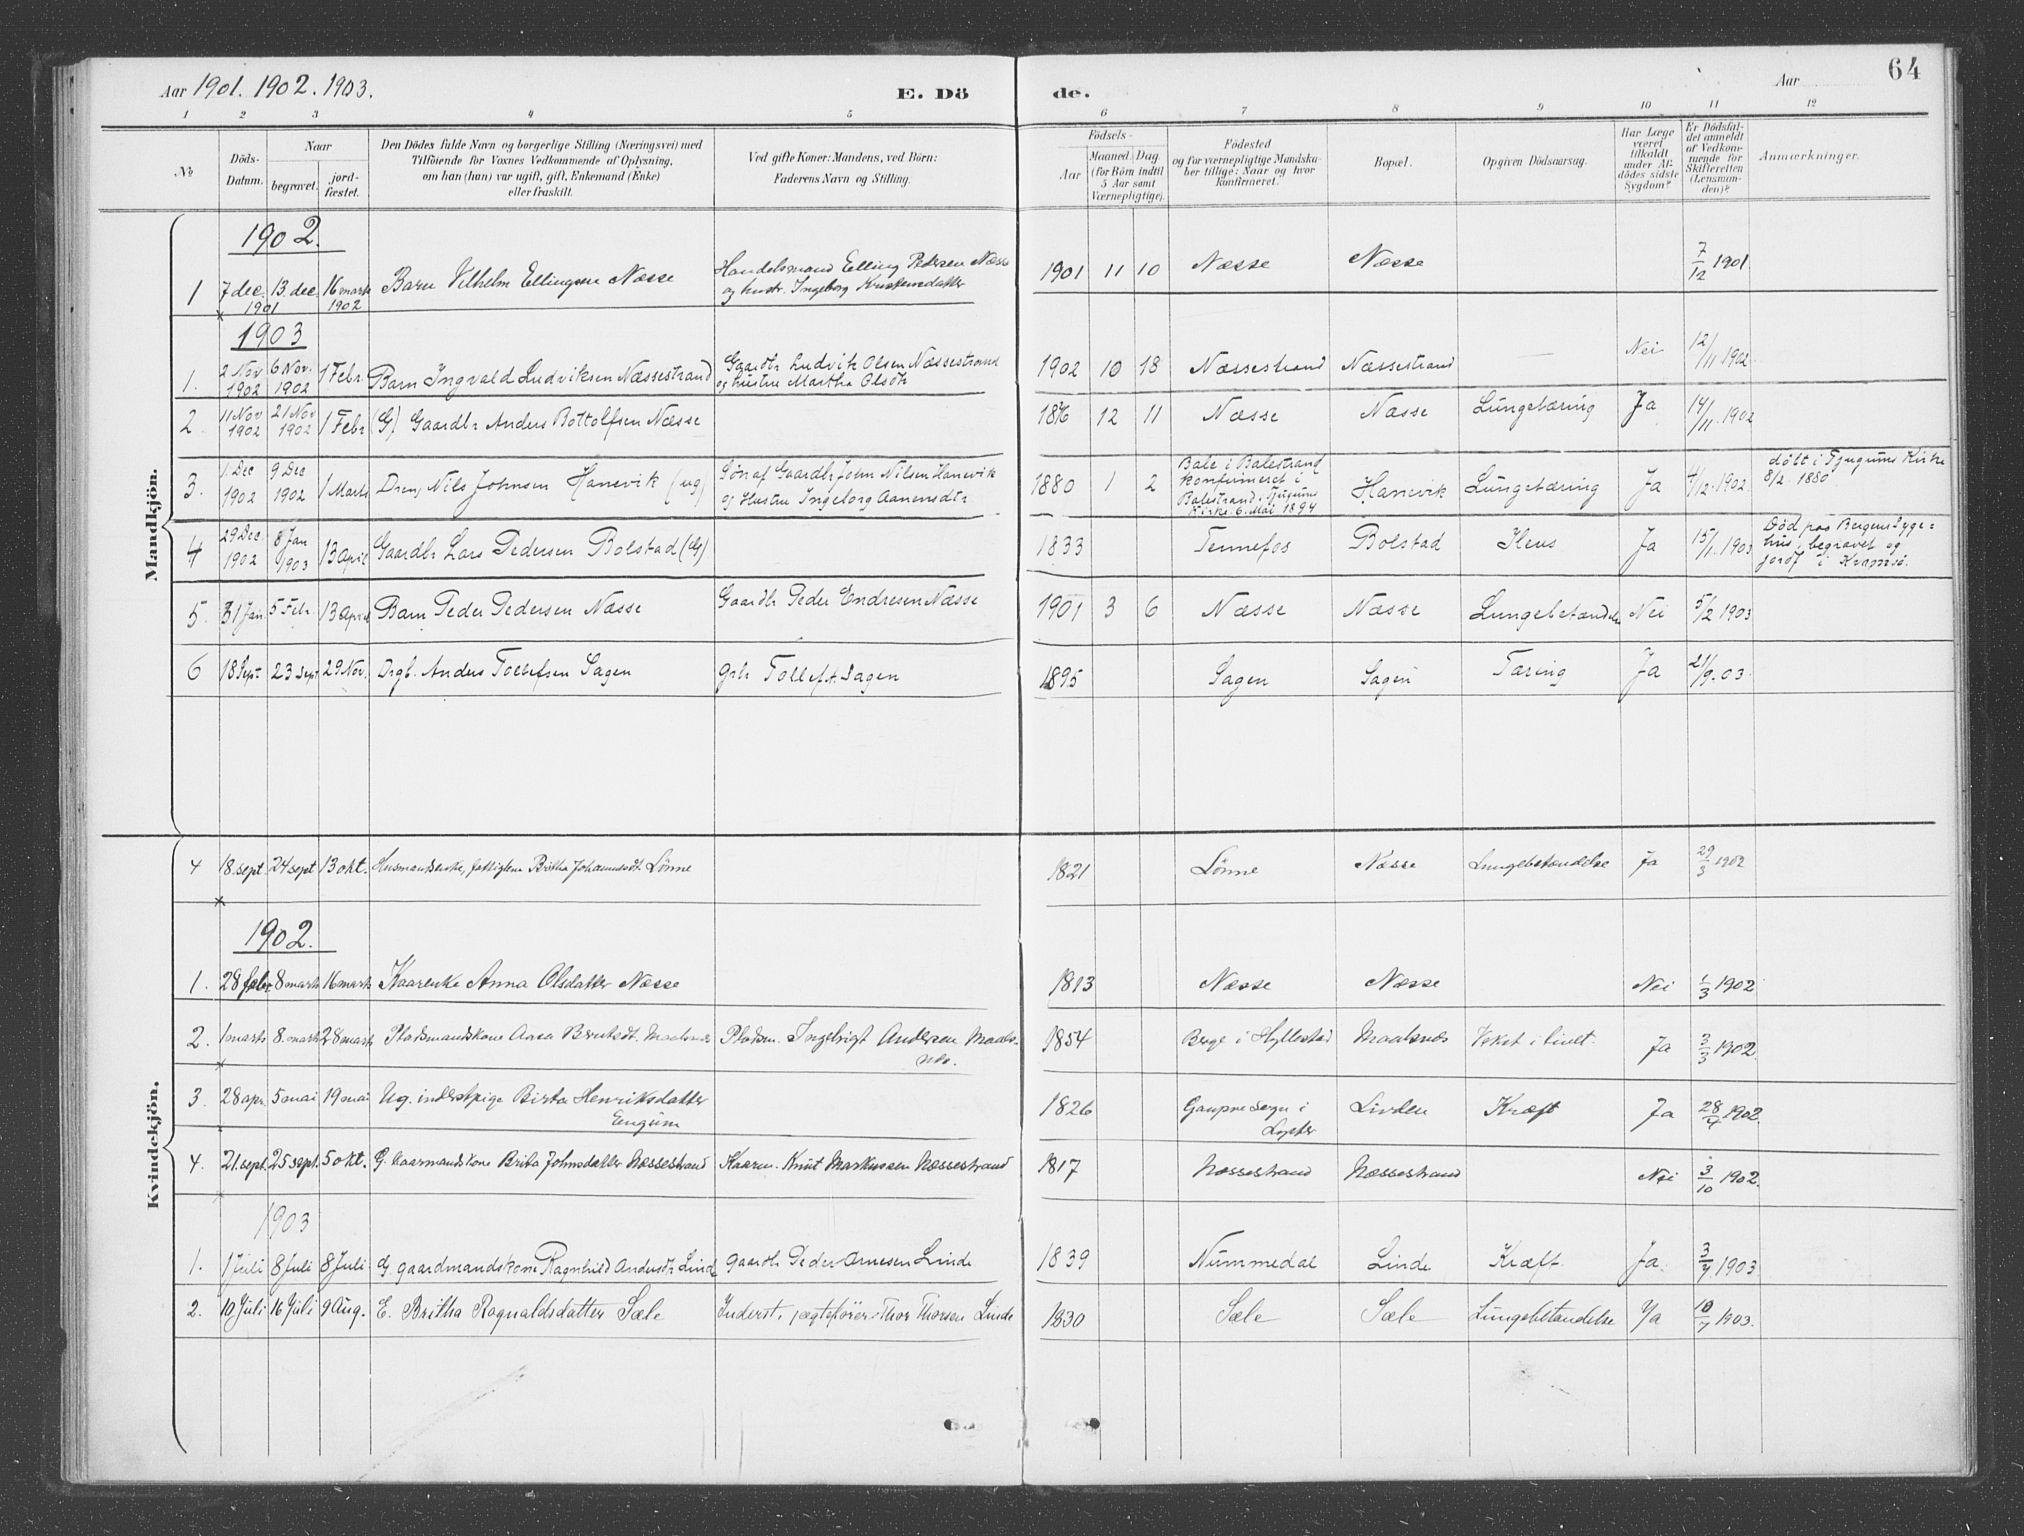 64
Aar 1901. 1902. 1903.
E. Dö de.
Aar
1 2 3 4 5 6 7 8 9 10 11 12
№
Döds-Datum.
Naar
begravet.
jord-fæstet.
Den Dödes fulde Navn og borgerlige Stilling (Næringsvei) med
Tilföiende for Voxnes Vedkommende af Oplysning,
om han (hun) var ugift, gift, Enkemand (Enke)
eller fraskilt.
Ved gifte Koner: Mandens, ved Börn:
Faderens Navn og Stilling.
Födsels-
Aar
Maaned. Dag.
(for Börn indtil
5 Aar samt
Værnepligtige).
Födested
og for værnepligtige Mandska-
ber tillige: Naar og hvor
konfirmeret.
Bopæl.
Opgiven Dödsaarsag.
Har Læge
været
tilkaldt
under Af-
dödes sidste
Sygdom?
Er Dödsfal-
det anmeldt
af Vedkom-
mende for
Skifteretten
(Lensman-
den)?
Anmærkninger.
Mandkjön.
1902.
1 7 dec. 1901 13. dec. 16 marts 1902 Barn Vilhelm Ellingsen Næsse Handelsmand Elling Pedersen Næsse og hustr. Ingeborg Kristensdatter 1901 11 10 Næsse Næsse 7/12 1901
1903
1. 2 Nov 1902 6 Nov. 1902 1 Febr. Barn Ingvald Ludviksen Næssestrand Gaardbr Ludvik Olsen Næssestrand og hustru Martha Olsdtr 1902 10 18 Næssestrand Næssestrand — Nei 12/11 1902
2. 11 Nov 1902 21 Nov 1902 1 Febr (G). Gaardbr Anders Bottolfsen Næsse 1876 12 11 Næsse Næsse Lungetæring Ja 14/11. 1902
3. 1 Dec 1902 9 Dec 1902 1 Marts Dreng Nils Johnsen Hanevik (ug) Søn af Gaardbr John Nilsen Hanevik og Hustru Ingeborg Aanensdtr 1880 1 2 Bale i Balestrand konfirmeret i Balestrand, Tjugums Kirke 6. Mai 1894 Hanevik Lungetæring Ja 4/12. 1902 døbt i Tjugums Kirke 8/2. 1880
4 29 Dec. 1902 8 Jan 1903 13 April Gaardbr Lars Pedersen Bolstad (G) 1833 Tennefos Bolstad Ileus Ja 15/1. 1903 Død paa Bergens Syge= hus, begravet og jordf i Kvamsø.
5. 31 Jan. 5 Febr 13 April Barn Peder Pedersen Næsse Gaardbr Peder Endresen Næsse 1901 3 6 Næsse Næsse Lungebetændelse Nei 5/2 1903
6 18 Sept 23 Sept 29 Nov. Drgb. Anders Tollefsen Sagen Gbr Tollef A. Sagen 1895 Sagen Sagen Tæring Ja 21/9. 03
Kvindekjön.
4 18. sept. 24 sept 13 okt. Husmandsenke, fattiglem Britha Johannesdt. Lønne 1821 Lønne Næsse Lungebetændelse Ja 29/3 1902
1902.
1. 28 febr. 8 marts 16 marts Kaarenke Anna Olsdatter Næsse 1813 Næsse Næsse Nei 1/3 1902
2. 1 marts 8. marts 28 marts Pladsmandskone Aasa Berntsdt. Maalsnæs Pladsm. Ingebrigt Andersen Maals- næs. 1854 Berge i Hyllestad Maalsnæs Vekst i livet. Ja 3/3 1902.
3. 28 apr. 5 mai 19 mai Ug. inderstpige Birta Henriksdatter Engum 1826 Gaupne sogn i Lyster Linden Kræft Ja 28/4 1902.
4. 21. sept. 25 sept. 5 okt. G. kaarmandskone Brita Johnsdatter Næssestrand Kaarm. Knut Markussen Næssestrand 1817 Næssestrand Næssestrand Nei 3/10 1902.
1903
1. 1 Juli 8 Juli 8 Juli G. gaardmandskone Ragnhild Andersdtr Linde Gaardbr Peder Arnesen Linde 1839 Nummedal Linde Kræft. Ja. 3/7 1903.
2. 10 Juli 16 Juli 9 Aug. E. Britha Ragnaldsdatter Sæle Inderst, jægtefører Thor Thorsen Linde 1830 Sæle Sæle Lungebetændelse Ja 10/7 1903.